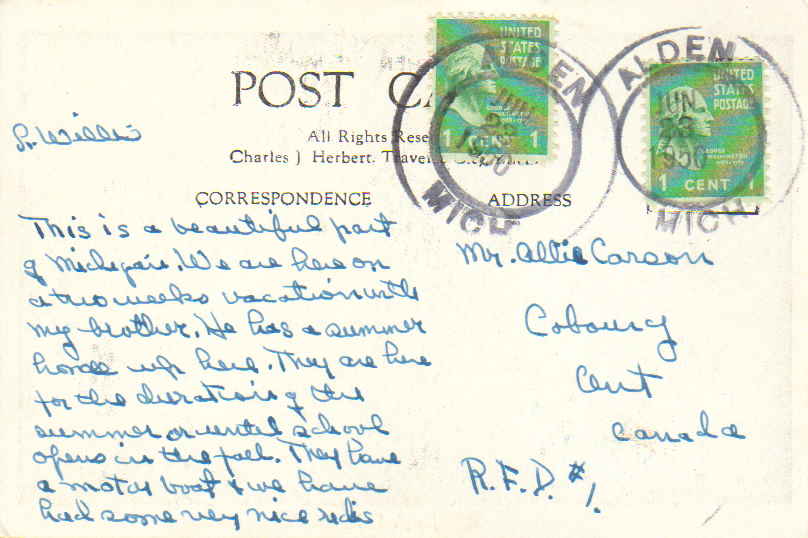 POST
All Rights Rese
Charles J Herbert. Travel
CORRESPONDENCE
ADDRESS
UNITED
STATES
POSTAGE
1 CENT 1
ALDEN
JUN
23
1950
MICH
UNITED
STATES
POSTAGE
GEORGE
WASHINGTON
1 CENT 1
ALDEN
JUN
23
1950
MICH
This is a beautiful part
of Michigan. We are here on
a two weeks vacation with
my brother. He has a summer
home up here. They are here
for the duration of the
summer or until school
opens in the fall. They have
a motor boat & we have
had some very nice rides
Mr. Allie Carson
Cobourg
Ont
Canada
R.F.D. #1.